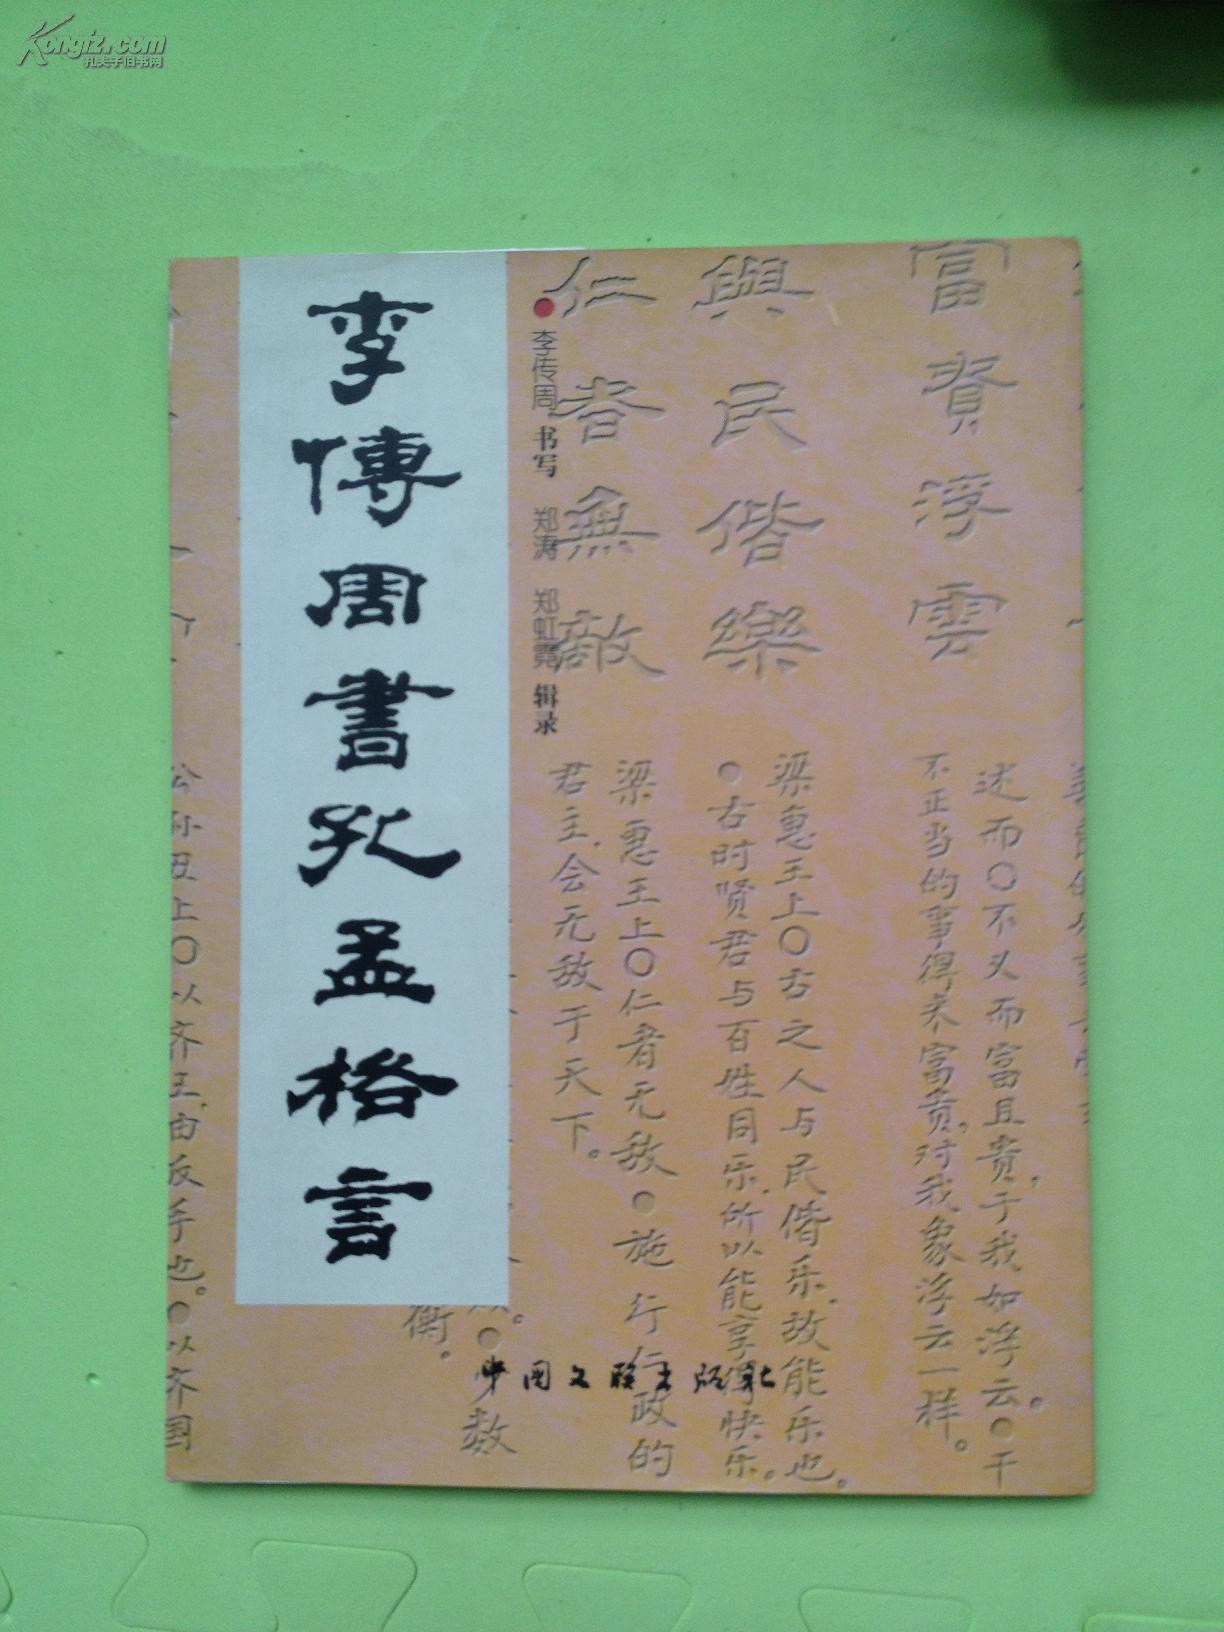 Kongfz.com
孔夫子旧书网
李傳周書孔孟格言
李传周 书写 郑涛 郑虹霓 辑录
富貴浮雲
述而〇不义而富且贵，于我如浮云。●干
不正当的事得来富贵，对我象浮云一样。
與民偕樂
梁惠王上〇古之人与民偕乐，故能乐也。
●古时贤君与百姓同乐，所以能享得快乐。
仁者無敵
梁惠王上〇仁者无敌●施行仁政的
君主，会无敌于天下。
数
衡。
公孙丑上〇以齐王，由反手也。●以齐国
中国文联出版社